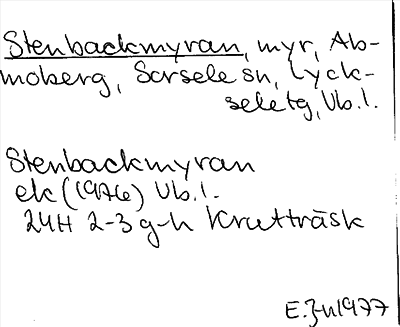 Stenbackmyran, myr, Ab-
moberg, Sorsele sn, Lyck-
sele tg, Vb.l.
Stenbackmyran
ek (1976) Vb.l.
24H 2-3 g-h Krutträsk
E.Jn 1977